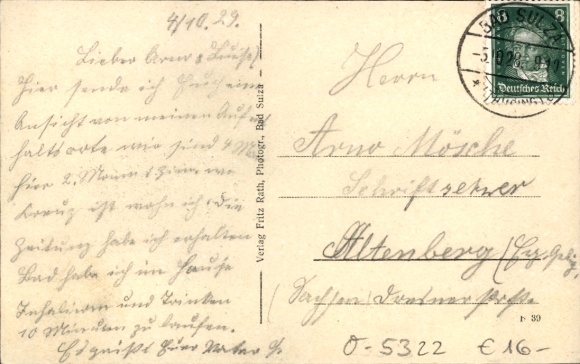 4/10.29.
Lieber Arno & Luise!
Hier sende ich Euch eine
Ansicht von meinen Aufent
haltsorte wir sind 4 M
hier 2. Mann 1 Zimmer wo
Kreuz ist wohn ich. Die
Zeitung habe ich erhalten
Bad habe ich im Hause
Inhalieren und Trinken
10 Minuten zu laufen.
Es grüßt Euer Vater
Verlag Fritz Rath, Photogr., Bad Sulza
BAD SULZA
(THÜRINGEN)
8
Deutsches Reich
Herrn
Arno Mösche
Schriftsetzer
Altenberg (Erzgebirg.
(Sachsen) Dresdnerstraße
39
O-5322 €16-